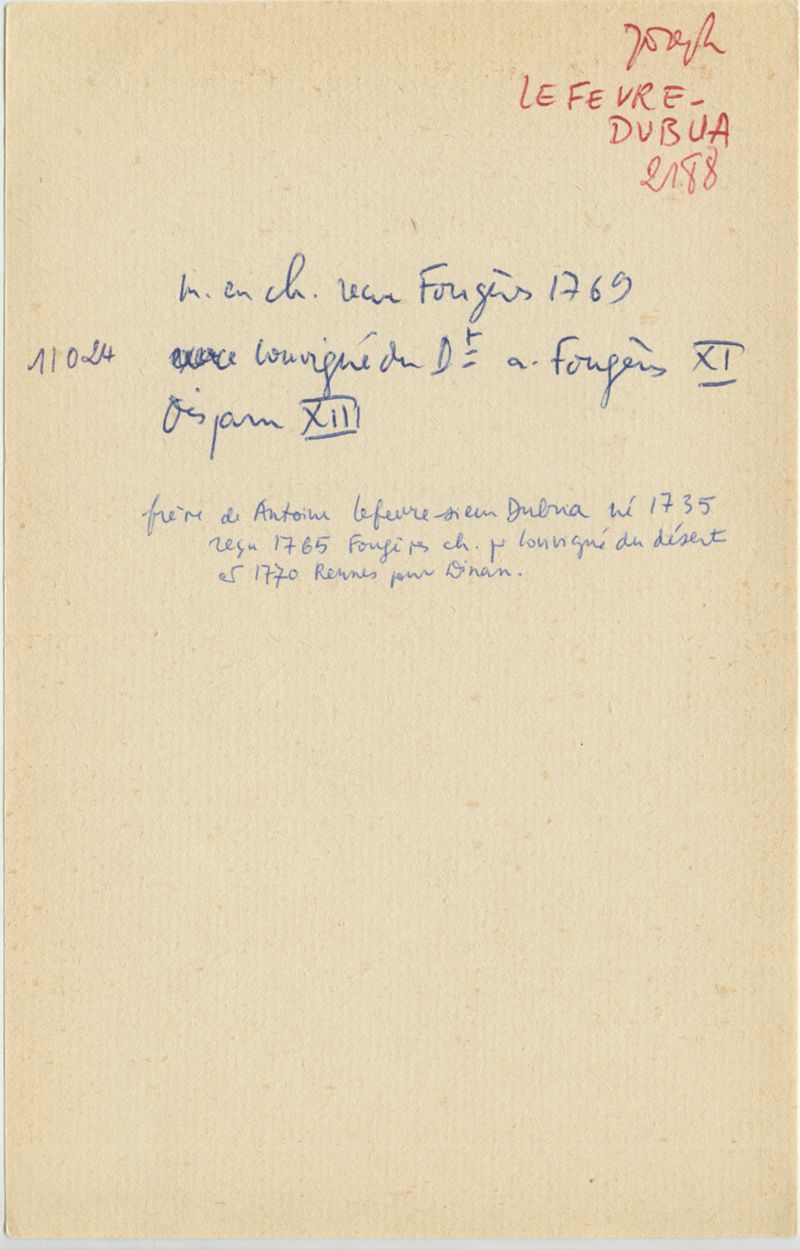 Joseph
LEFEVRE-
DUBUA
2188
m. en ch. recu Fougères 1769
11024 Louvigné du Dt a. Fougères XI
Disparu XIII
frère de Antoine Lefeuvre-sieur Dubua né 1735
reçu 1765 Fougères ch. pr Louvigné du désert
et 1770 Rennes pour Dinan.